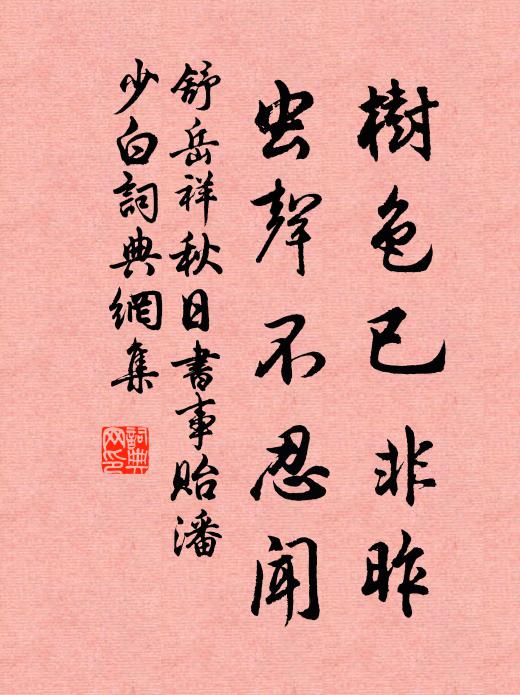 樹色已非昨
虫聲不忍聞
舒岳祥秋日書事貽潘
少白詞典網集
詞典网印